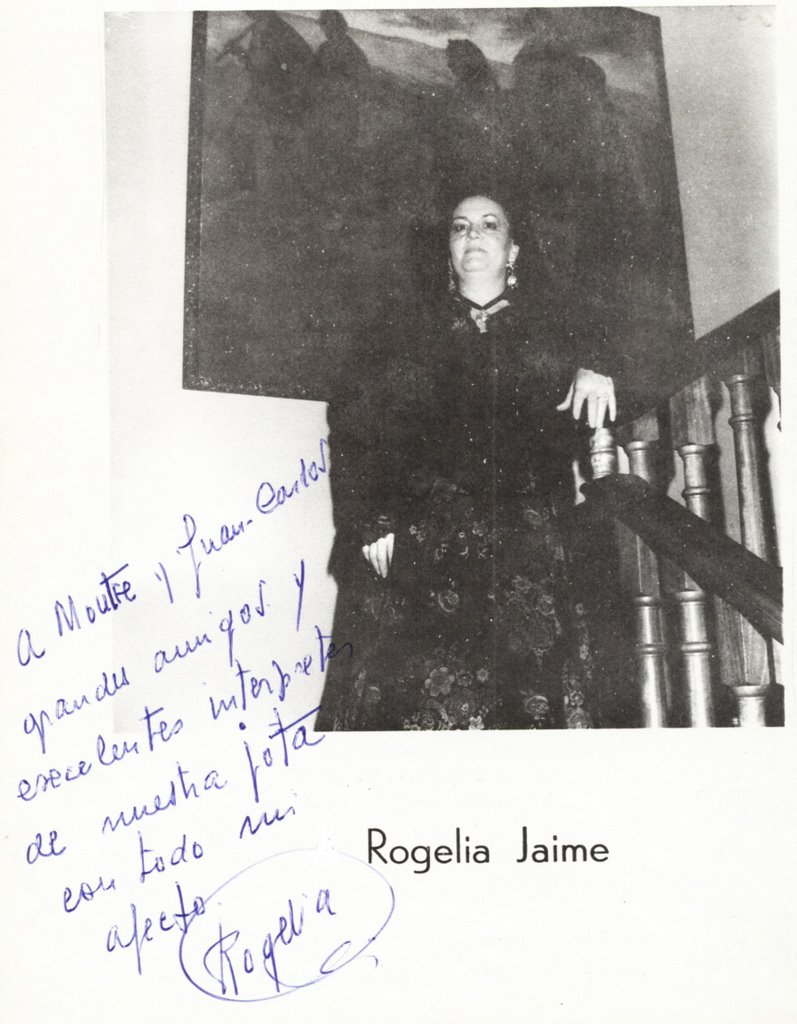 A Montse y Juan-Carlos
grandes amigos y
excelentes interpretes
de nuestra jota
con todo mi
afecto.
Rogelia
Rogelia Jaime